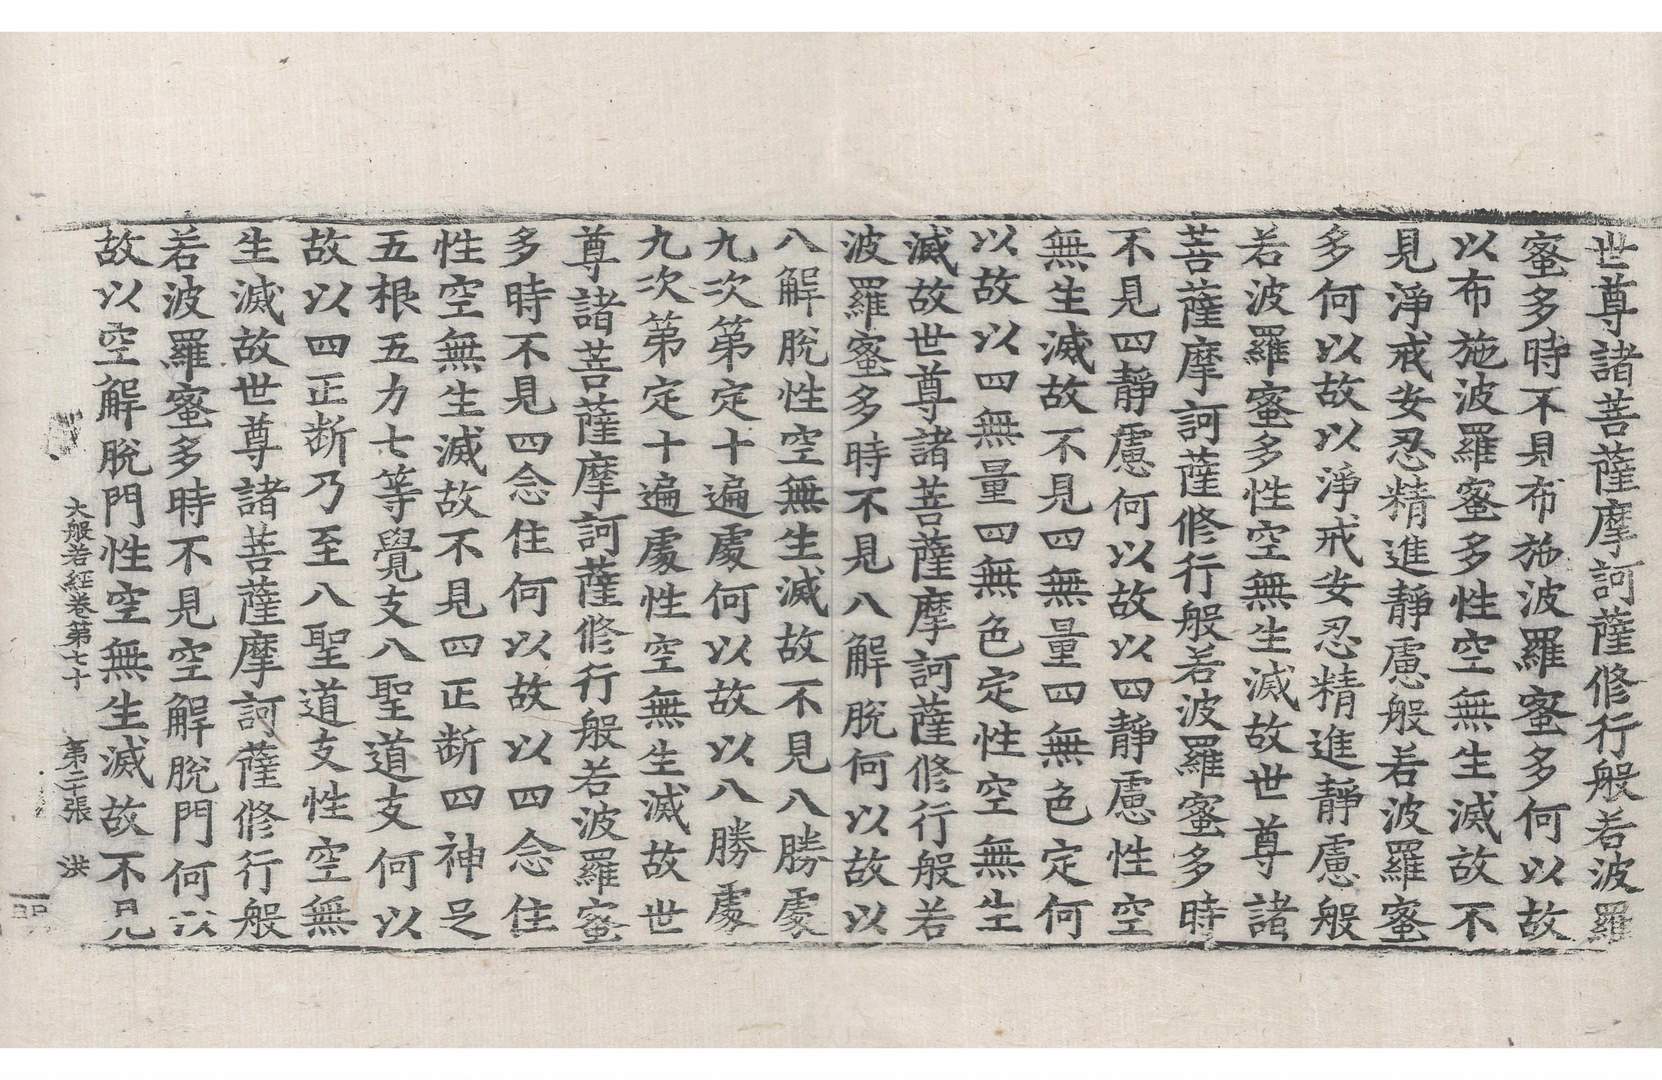 世尊諸菩薩摩訶薩修行般若波羅
蜜多時不見布施波羅蜜多何以故
以布施波羅蜜多性空無生滅故不
見淨戒安忍精進靜慮般若波羅蜜
多何以故以淨戒安忍精進靜慮般
若波羅蜜多性空無生滅故世尊諸
菩薩摩訶薩修行般若波羅蜜多時
不見四靜慮何以故以四靜慮性空
無生滅故不見四無量四無色定何
以故以四無量四無色定性空無生
滅故世尊諸菩薩摩訶薩修行般若
波羅蜜多時不見八解脫何以故以
八解脫性空無生滅故不見八勝處
九次第定十遍處何以故以八勝處
九次第定十遍處性空無生滅故世
尊諸菩薩摩訶薩修行般若波羅蜜
多時不見四念住何以故以四念住
性空無生滅故不見四正断四神足
五根五力七等覺支八聖道支何以
故以四正断乃至八聖道支性空無
生滅故世尊諸菩薩摩訶薩修行般
若波羅蜜多時不見空解脫門何以
故以空解脫門性空無生滅故不見
大般若經卷第七十 第二十張 洪